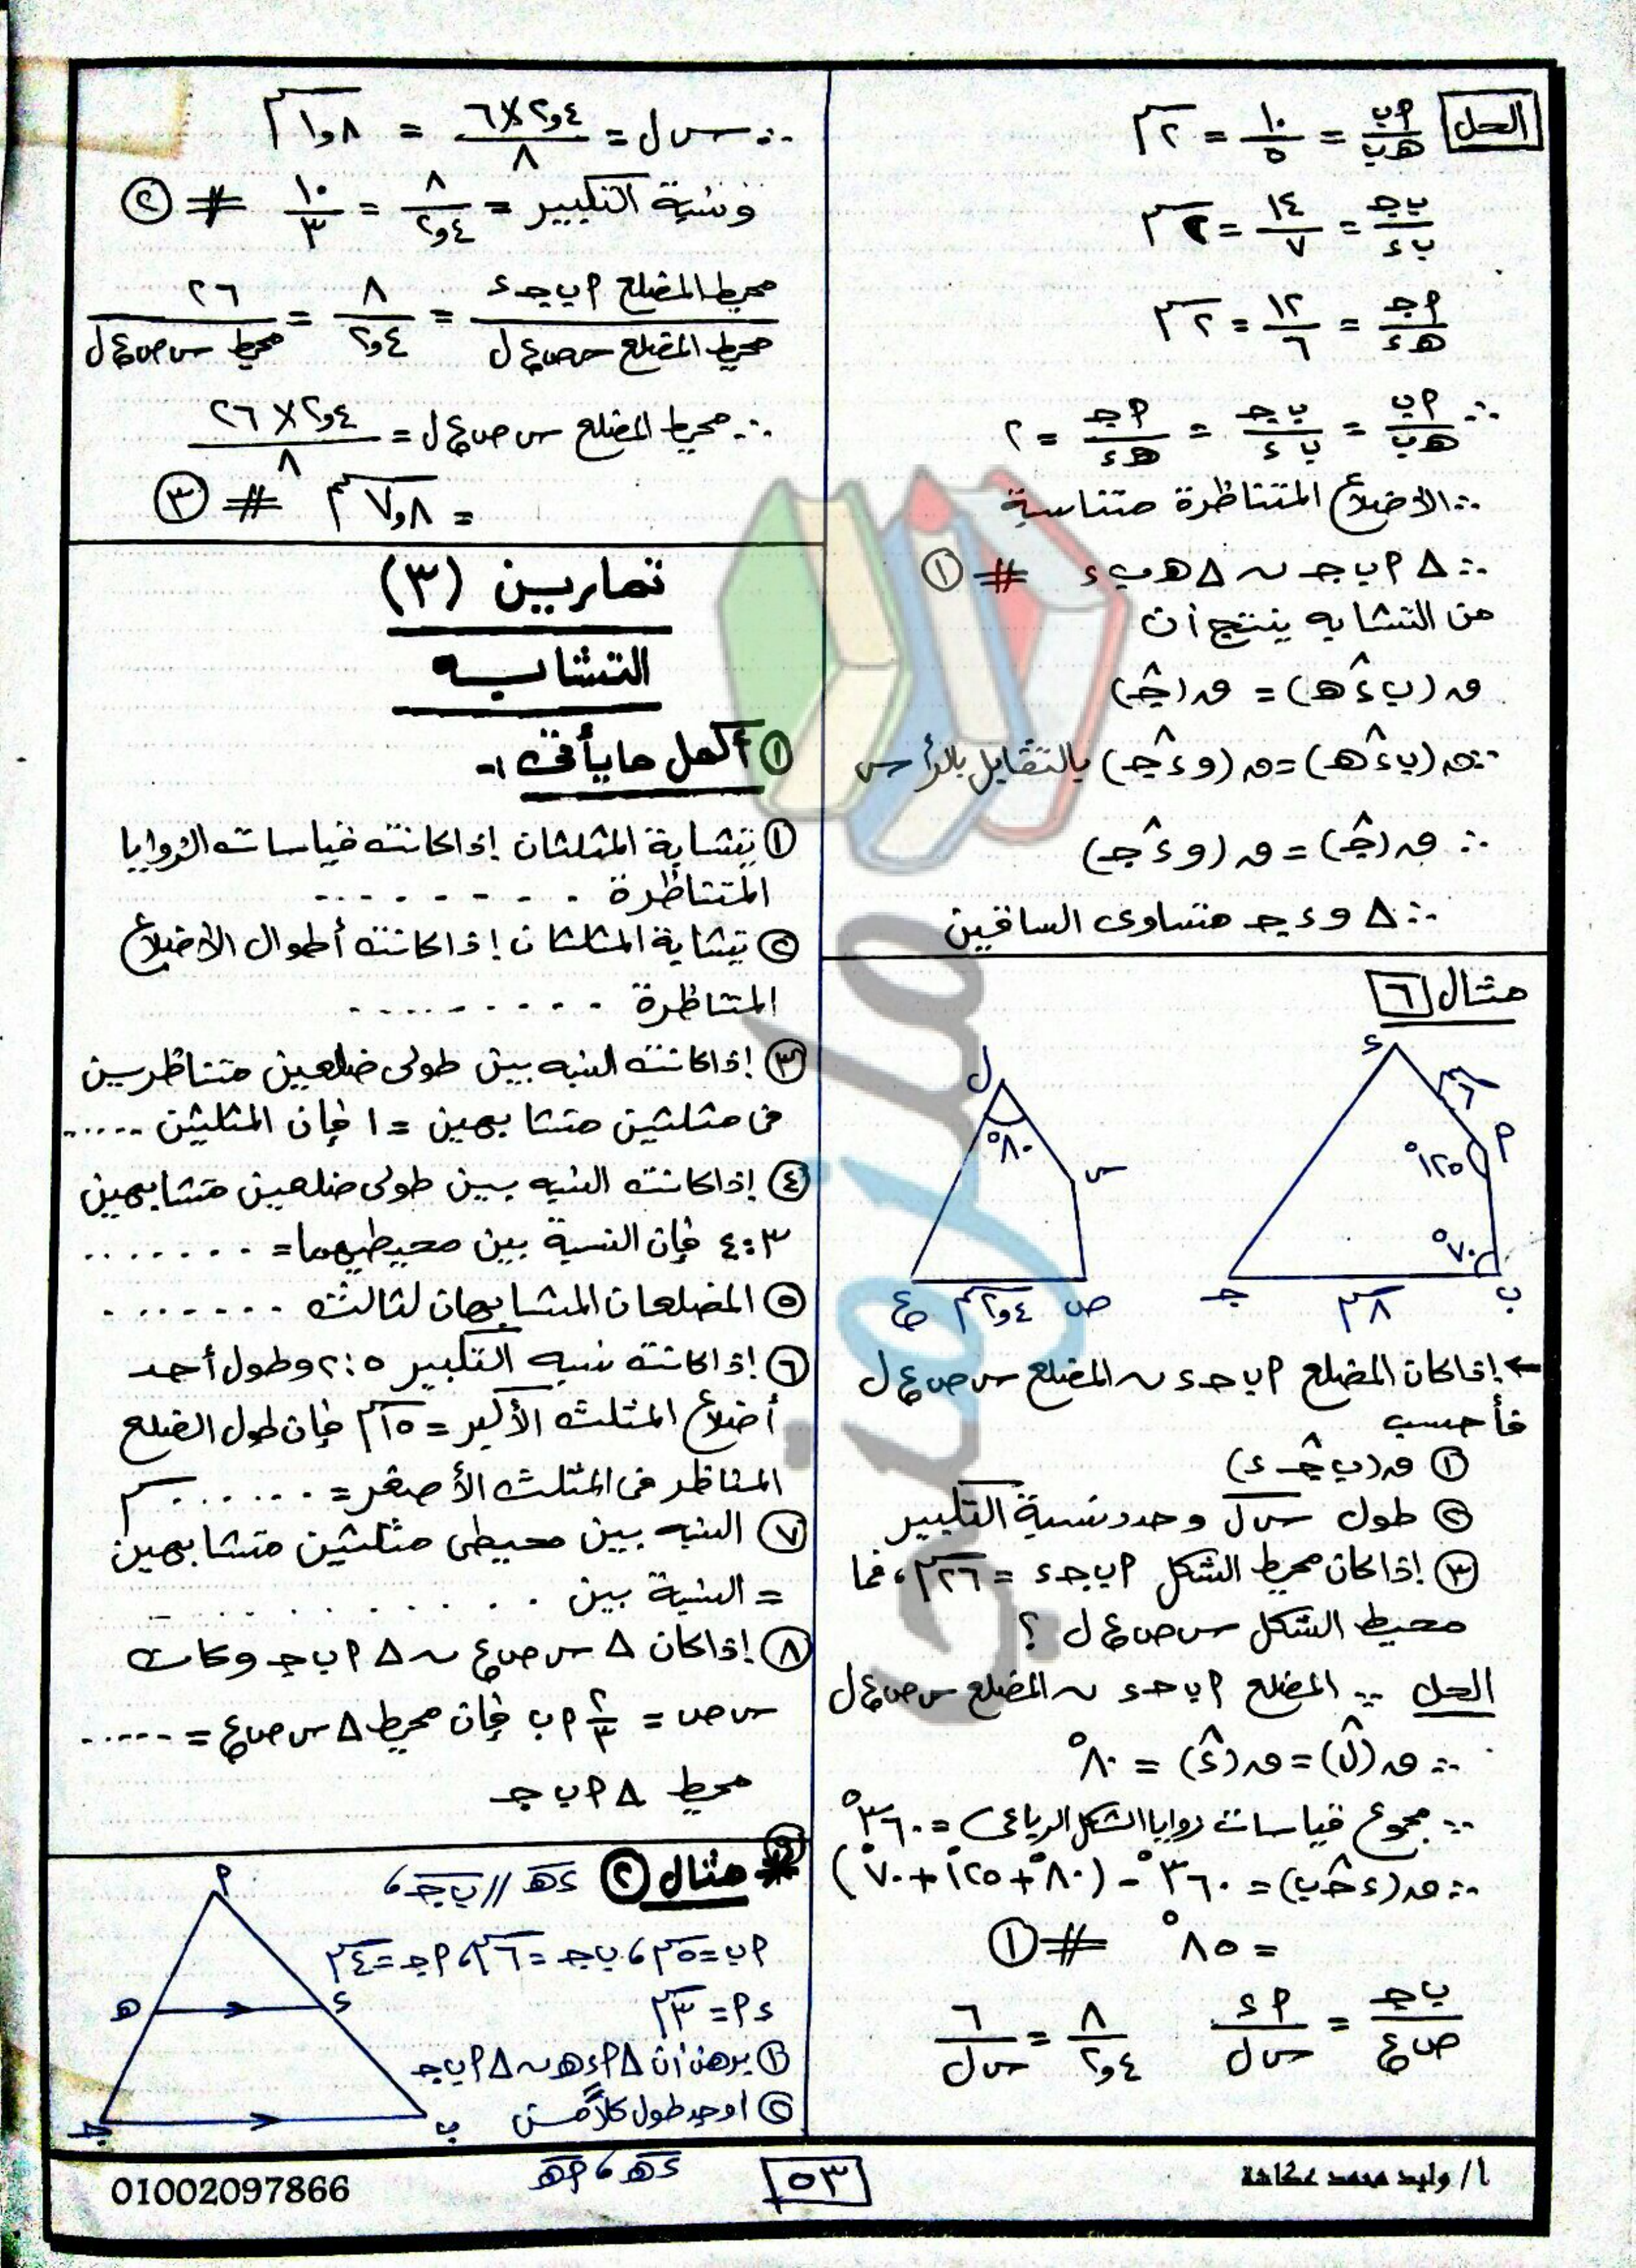 الحل أب/هب = ١٠/٥ = ٢سم
ب ج/ب ء = ١٤/٧ = ٢سم
أ ج/هـ ء = ١٢/٦ = ٢سم
∴ أب/هب = ب ج/ب ء = أ ج/هـ ء = ٢
∴ الأضلاع المتناظرة متناسبة
∴ Δ أ ب ج ~ Δ هـ ب ء # ①
من التشابه ينتج أن
ق(ب ء̂ هـ) = ق(ج̂)
∵ ق(ب ء̂ هـ) = ق(و ء̂ ج) بالتقابل بالرأس
∴ ق(ج̂) = ق(و ء̂ ج)
∴ Δ و ء ج متساوى الساقين
مثال ٦
ء
٦سم
أ
١٢٥°
٧٠°
ب
٨سم
ج
ل
٨٠°
س
ص
٢,٤سم
ع
← إذا كان المضلع أ ب ج ء ~ المضلع س ص ع ل
فأحسب
① ق(ب ج̂ ء)
② طول س ل وحدد نسبة التكبير
③ إذا كان محيط الشكل أ ب ج ء = ٢٦سم، فما
محيط الشكل س ص ع ل ؟
الحل ∵ المضلع أ ب ج ء ~ المضلع س ص ع ل
∴ ق(ل̂) = ق(ء̂) = ٨٠°
∵ مجموع قياسات زوايا الشكل الرباعى = ٣٦٠°
∴ ق(ء ج̂ ب) = ٣٦٠° - (٨٠° + ١٢٥° + ٧٠°)
= ٨٥° # ①
ب ج/ص ع = أ ء/س ل ٨/٢,٤ = ٦/س ل
∴ س ل = ٢,٤×٦/٨ = ١,٨سم
ونسبة التكبير = ٨/٢,٤ = ١٠/٣ # ②
محيط المضلع أ ب ج ء/محيط المضلع س ص ع ل = ٨/٢,٤ = ٢٦/محيط س ص ع ل
∴ محيط المضلع س ص ع ل = ٢,٤×٢٦/٨
= ٧,٨سم # ③
تمارين (٣)
التشابه
① أكمل ما يأتى :-
① يتشابة المثلثان إذا كانت قياسات الزوايا
المتناظرة . . . . . . . .
② يتشابة المثلثان إذا كانت أطوال الأضلاع
المتناظرة . . . . . . . . .
③ إذا كانت النسبه بين طولى ضلعين متناظرين
فى مثلثين متشابهين = ١ فإن المثلثين ......
④ إذا كانت النسبه بين طولى ضلعين متشابهين
٣:٤ فإن النسبة بين محيطيهما= . . . . . . .
⑤ المضلعان المتشابهان لثالث . . . . . . .
⑥ إذا كانت نسبه التكبير ٥:٢ وطول أحد
أضلاع المثلث الأكبر = ١٥سم فإن طول الضلع
المناظر فى المثلث الأصغر = . . . . . . سم
⑦ النسبه بين محيطى مثلثين متشابهين
= النسبة بين . . . . . . . . . . .
⑧ إذا كان Δ س ص ع ~ Δ أ ب ج وكان
س ص = ٢/٣ أ ب فإن محيط Δ س ص ع = ......
محيط Δ أ ب ج
⑨ مثال ② ء هـ // ب ج ،
أب=٥سم، ب ج=٦سم، أج=٤سم
ء أ = ٣سم
① برهن أن Δ أ ء هـ ~ Δ أ ب ج
② اوجد طول كلاً من
ء هـ ، أ هـ
أ
هـ
ء
ج
ب
أ/ وليد محمد عكاشة
٥٣
01002097866